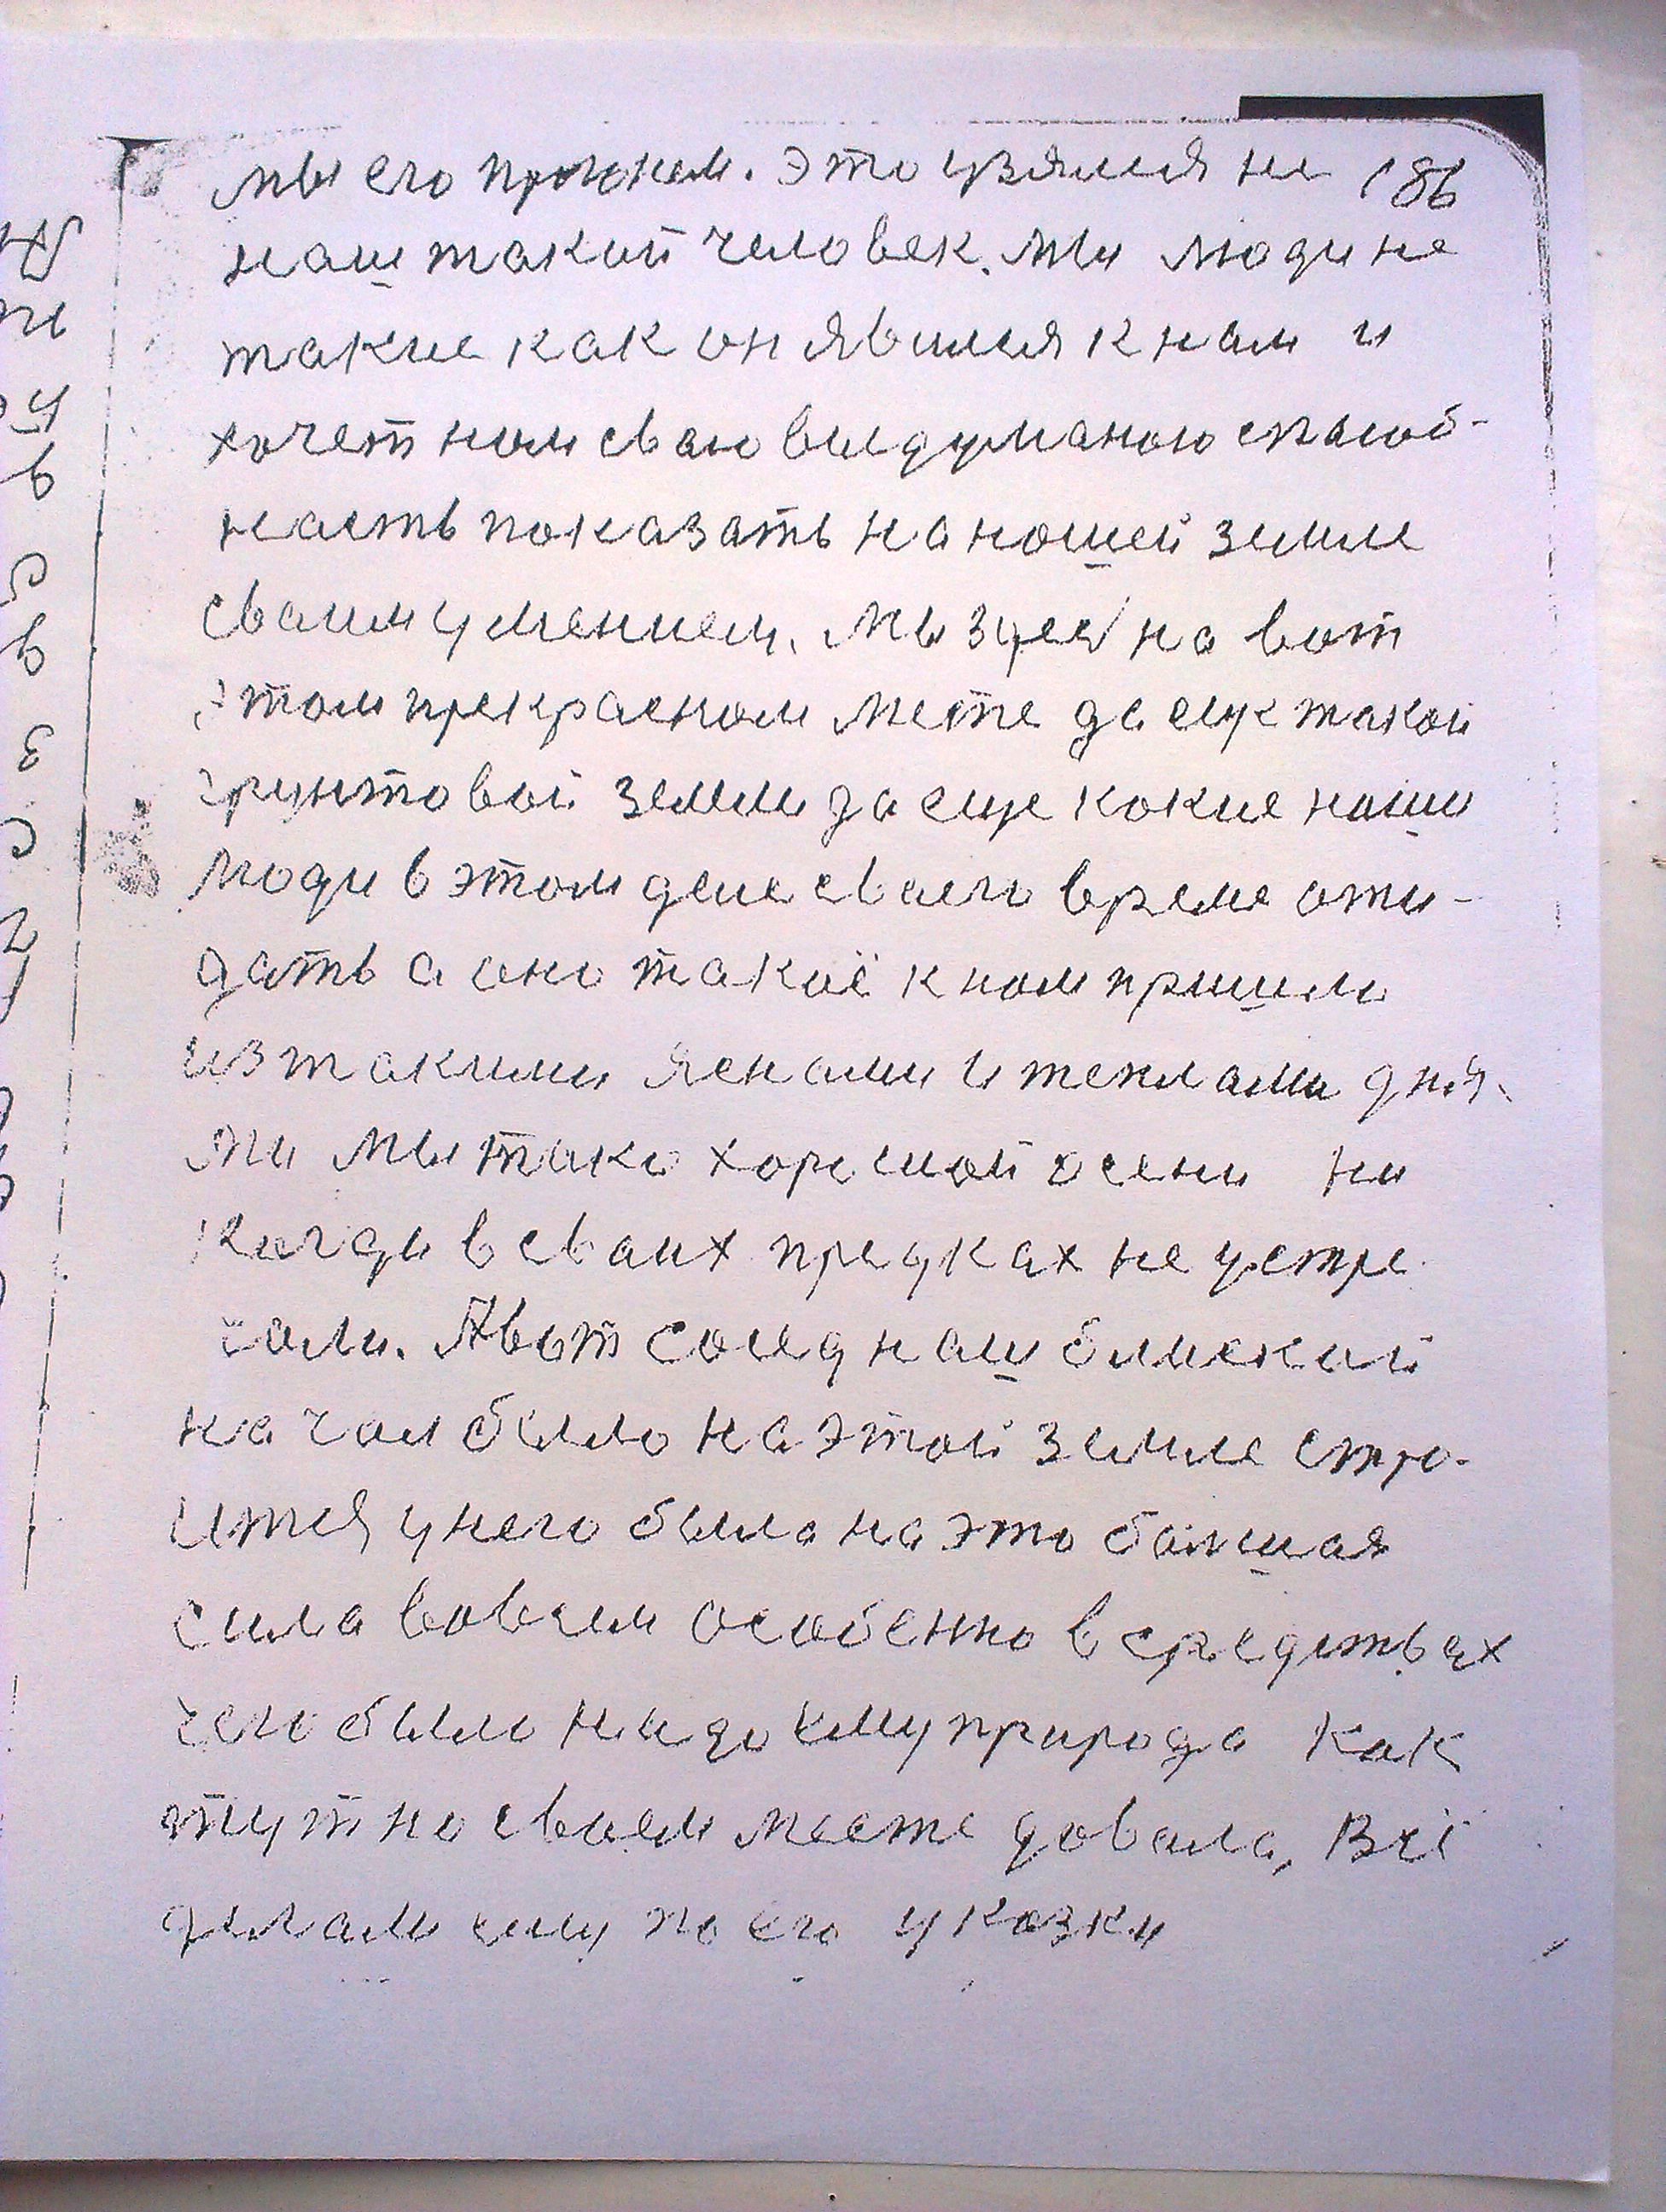 мы его прогоном. Это узялся не 186
наш такий человек. Мы люди не
такие как он явился к нам и
хочет нам сваю выдуманою спасоб-
насть показать на нашей земле
сваим умением. Мы здесь на вот
этом прекрасном месте да еще такой
грунтовой земли да еще какие наши
люди в этом деле сваего время ожи-
дать а оно такое к нам пришло
из такими яснами и теплами дня-
ми мы тако хорошой осени ни
когди в сваих предках не устре
чали. А вот сосед наш близкий
начал было на этой земле стро-
ится у него была на это большая
сила вовсем особенно в средствах
чего было надо ему природа как
тут на сваем месте давала, Всё
делали ему по его указки